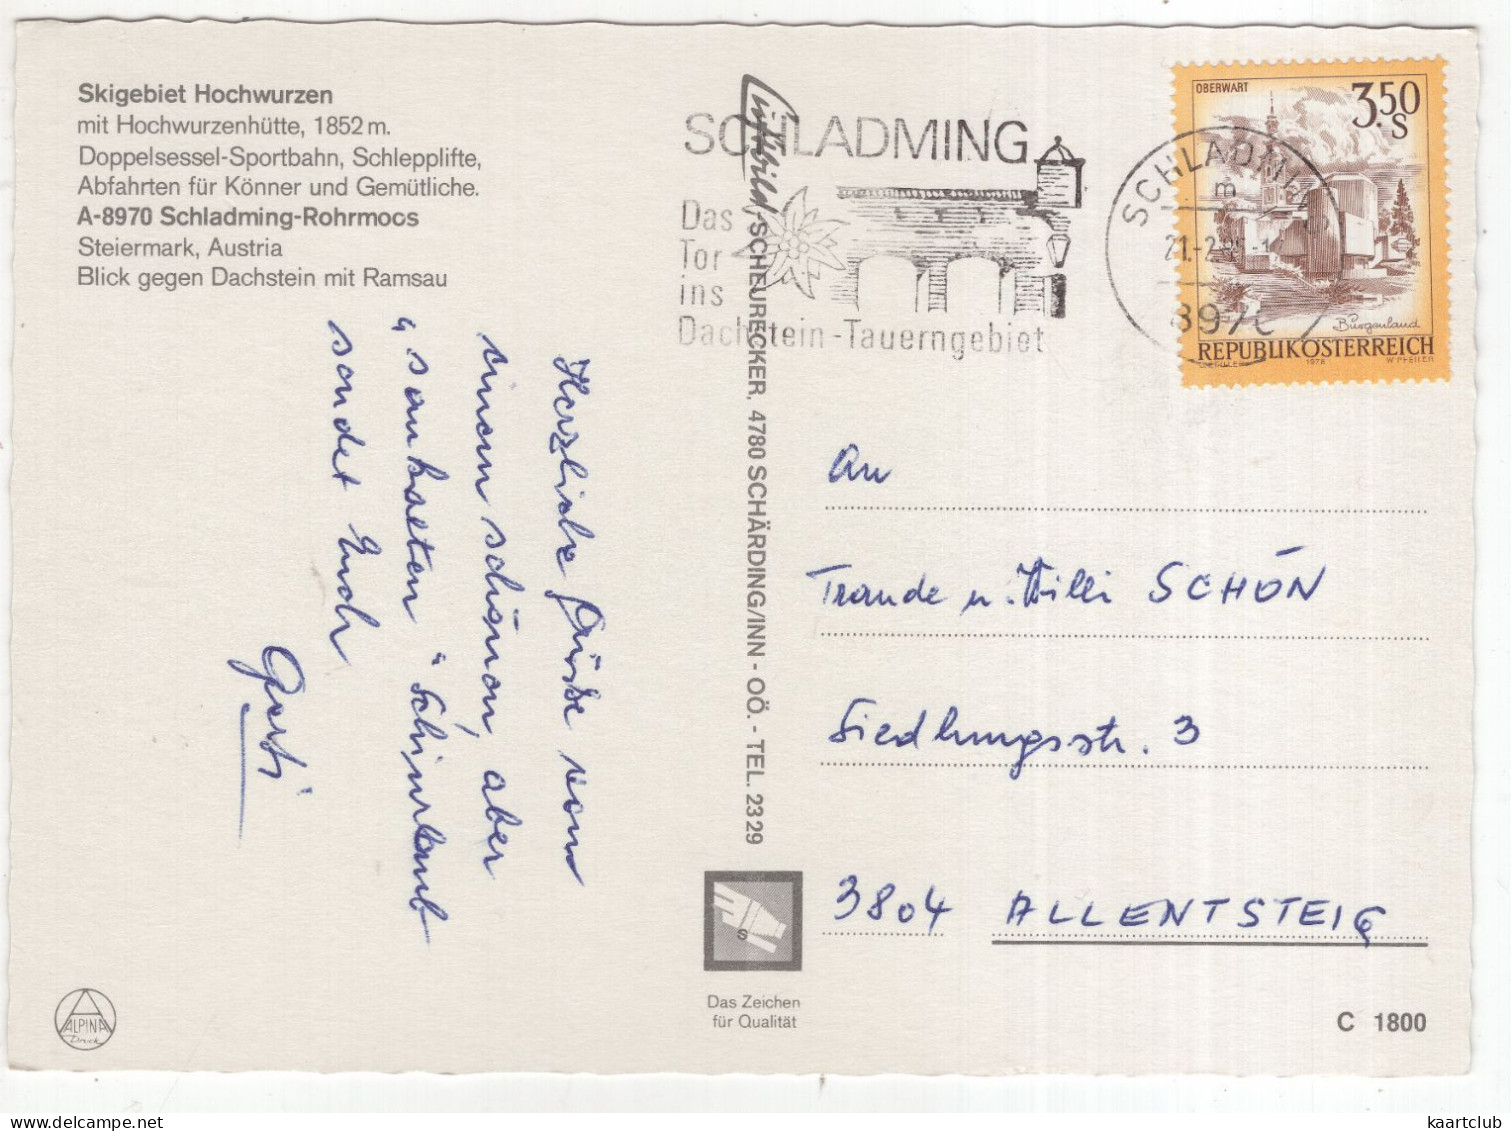 Skigebiet Hochwurzen
mit Hochwurzenhütte, 1852 m.
Doppelsessel-Sportbahn, Schlepplifte,
Abfahrten für Könner und Gemütliche.
A-8970 Schladming-Rohrmoos
Steiermark, Austria
Blick gegen Dachstein mit Ramsau
Herzliche Grüße von
einem schönen, aber
"saukalten" Schiurlaub
sendet Euch
Gerti
SCHLADMING
Das
Tor
ins
Dachstein-Tauerngebiet
SCHEURECKER, 4780 SCHÄRDING/INN - OÖ. - TEL. 2329
SCHLADMING
OBERWART
3.50
S
Burgenland
REPUBLIK ÖSTERREICH
1978
W. PFEILER
An
Traude u. Willi SCHÖN
Siedlungsstr. 3
3804 ALLENTSTEIG
S
Das Zeichen
für Qualität
ALPINA
Druck
C 1800
kaartclub